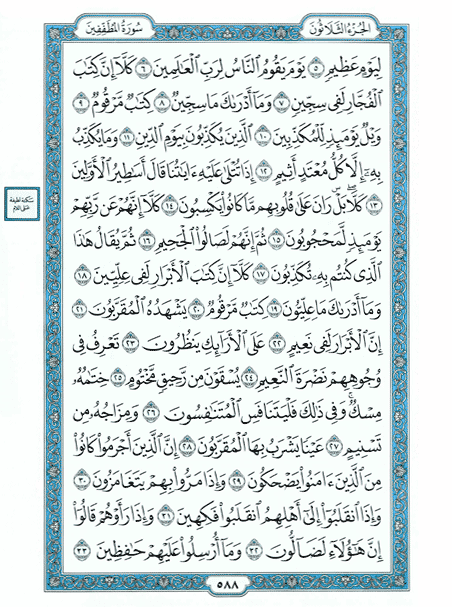 سُورَةُ المُطَفِّفِين
الجُزْءُ الثَّلَاثُون
لِيَوْمٍ عَظِيمٍ ٥ يَوْمَ يَقُومُ النَّاسُ لِرَبِّ الْعَالَمِينَ ٦ كَلَّا إِنَّ كِتَابَ
الْفُجَّارِ لَفِي سِجِّينٍ ٧ وَمَا أَدْرَاكَ مَا سِجِّينٌ ٨ كِتَابٌ مَرْقُومٌ ٩
وَيْلٌ يَوْمَئِذٍ لِلْمُكَذِّبِينَ ١٠ الَّذِينَ يُكَذِّبُونَ بِيَوْمِ الدِّينِ ١١ وَمَا يُكَذِّبُ
بِهِ إِلَّا كُلُّ مُعْتَدٍ أَثِيمٍ ١٢ إِذَا تُتْلَى عَلَيْهِ ءَايَاتُنَا قَالَ أَسَاطِيرُ الْأَوَّلِينَ
١٣ كَلَّا بَلْ رَانَ عَلَى قُلُوبِهِمْ مَا كَانُوا يَكْسِبُونَ ١٤ كَلَّا إِنَّهُمْ عَنْ رَبِّهِمْ
يَوْمَئِذٍ لَمَحْجُوبُونَ ١٥ ثُمَّ إِنَّهُمْ لَصَالُوا الْجَحِيمِ ١٦ ثُمَّ يُقَالُ هَذَا
الَّذِي كُنْتُمْ بِهِ تُكَذِّبُونَ ١٧ كَلَّا إِنَّ كِتَابَ الْأَبْرَارِ لَفِي عِلِّيِّينَ ١٨
وَمَا أَدْرَاكَ مَا عِلِّيُّونَ ١٩ كِتَابٌ مَرْقُومٌ ٢٠ يَشْهَدُهُ الْمُقَرَّبُونَ ٢١
إِنَّ الْأَبْرَارَ لَفِي نَعِيمٍ ٢٢ عَلَى الْأَرَائِكِ يَنْظُرُونَ ٢٣ تَعْرِفُ فِي
وُجُوهِهِمْ نَضْرَةَ النَّعِيمِ ٢٤ يُسْقَوْنَ مِنْ رَحِيقٍ مَخْتُومٍ ٢٥ خِتَامُهُ
مِسْكٌ وَفِي ذَلِكَ فَلْيَتَنَافَسِ الْمُتَنَافِسُونَ ٢٦ وَمِزَاجُهُ مِنْ
تَسْنِيمٍ ٢٧ عَيْنًا يَشْرَبُ بِهَا الْمُقَرَّبُونَ ٢٨ إِنَّ الَّذِينَ أَجْرَمُوا كَانُوا
مِنَ الَّذِينَ ءَامَنُوا يَضْحَكُونَ ٢٩ وَإِذَا مَرُّوا بِهِمْ يَتَغَامَزُونَ ٣٠
وَإِذَا انْقَلَبُوا إِلَى أَهْلِهِمُ انْقَلَبُوا فَكِهِينَ ٣١ وَإِذَا رَأَوْهُمْ قَالُوا
إِنَّ هَؤُلَاءِ لَضَالُّونَ ٣٢ وَمَا أُرْسِلُوا عَلَيْهِمْ حَافِظِينَ ٣٣
سكتة لطيفة
على اللام
٥٨٨